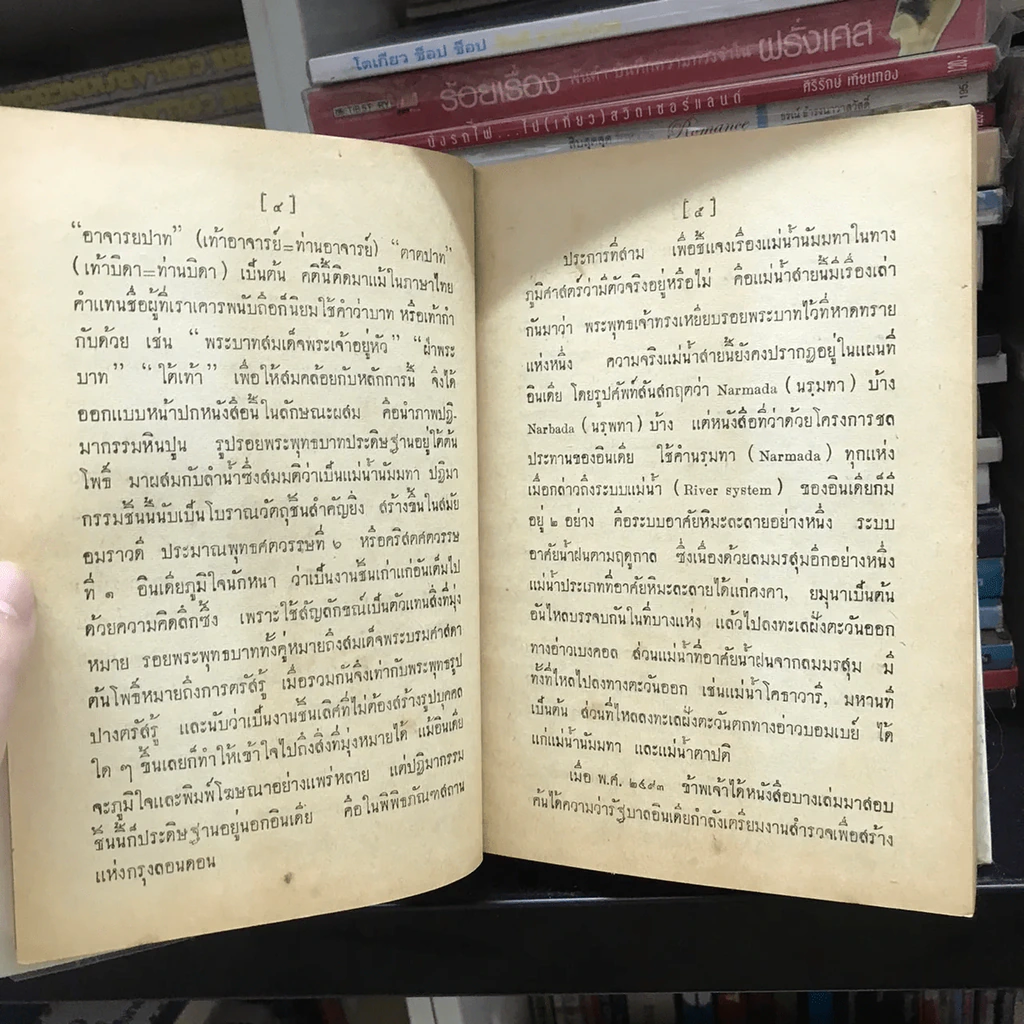 โตเกียว ช็อป ช็อป
ร้อยเรื่อง
ฝรั่งเศส
ศิริรักษ์ เทียนทอง
นั่งรถไฟ...ไป(เที่ยว)สวิตเซอร์แลนด์
Romance
195
[ ๔ ]
“อาจารยปาท” (เท้าอาจารย์=ท่านอาจารย์) “ตาตปาท”
(เท้าบิดา=ท่านบิดา) เป็นต้น คตินี้ติดมาแม้ในภาษาไทย
คำแทนชื่อผู้ที่เราเคารพนับถือก็นิยมใช้คำว่าบาท หรือเท้ากำ
กับด้วย เช่น “พระบาทสมเด็จพระเจ้าอยู่หัว” “ฝ่าพระ
บาท” “ใต้เท้า” เพื่อให้สมคล้อยกับหลักการนี้ จึงได้
ออกแบบหน้าปกหนังสือนี้ในลักษณะผสม คือนำภาพปฏิ-
มากรรมหินปูน รูปรอยพระพุทธบาทประดิษฐานอยู่ใต้ต้น
โพธิ์ มาผสมกับลำน้ำซึ่งสมมติว่าเป็นแม่น้ำนัมมทา ปฏิมา
กรรมชิ้นนี้นับเป็นโบราณวัตถุชิ้นสำคัญยิ่ง สร้างขึ้นในสมัย
อมราวดี ประมาณพุทธศตวรรษที่ ๖ หรือคริสตศตวรรษ
ที่ ๑ อินเดียภูมิใจนักหนา ว่าเป็นงานชิ้นเก่าแก่อันเต็มไป
ด้วยความคิดลึกซึ้ง เพราะใช้สัญลักขณ์เป็นตัวแทนสิ่งที่มุ่ง
หมาย รอยพระพุทธบาททั้งคู่หมายถึงสมเด็จพระบรมศาสดา
ต้นโพธิ์หมายถึงการตรัสรู้ เมื่อรวมกันจึงเท่ากับพระพุทธรูป
ปางตรัสรู้ และนับว่าเป็นงานชิ้นเลิศที่ไม่ต้องสร้างรูปบุคคล
ใด ๆ ขึ้นเลยก็ทำให้เข้าใจไปถึงสิ่งที่มุ่งหมายได้ แม้อินเดีย
จะภูมิใจและพิมพ์โฆษณาอย่างแพร่หลาย แต่ปฏิมากรรม
ชิ้นนี้ก็ประดิษฐานอยู่นอกอินเดีย คือในพิพิธภัณฑ์สถาน
แห่งกรุงลอนดอน
[ ๕ ]
ประการที่สาม เพื่อชี้แจงเรื่องแม่น้ำนัมมทาในทาง
ภูมิศาสตร์ว่ามีตัวจริงอยู่หรือไม่ คือแม่น้ำสายนี้มีเรื่องเล่า
กันมาว่า พระพุทธเจ้าทรงเหยียบรอยพระบาทไว้ที่หาดทราย
แห่งหนึ่ง ความจริงแม่น้ำสายนี้ยังคงปรากฏอยู่ในแผนที่
อินเดีย โดยรูปศัพท์สันสกฤตว่า Narmada (นรฺมทา) บ้าง
Narbada (นรฺพทา) บ้าง แต่หนังสือที่ว่าด้วยโครงการชล
ประทานของอินเดีย ใช้คำนรฺมทา (Narmada) ทุกแห่ง
เมื่อกล่าวถึงระบบแม่น้ำ (River system) ของอินเดียก็มี
อยู่ ๒ อย่าง คือระบบอาศัยหิมะละลายอย่างหนึ่ง ระบบ
อาศัยน้ำฝนตามฤดูกาล ซึ่งเนื่องด้วยลมมรสุมอีกอย่างหนึ่ง
แม่น้ำประเภทที่อาศัยหิมะละลายได้แก่คงคา, ยมุนาเป็นต้น
อันไหลบรรจบกันในที่บางแห่ง แล้วไปลงทะเลฝั่งตะวันออก
ทางอ่าวเบงคอล ส่วนแม่น้ำที่อาศัยน้ำฝนจากลมมรสุม มี
ทั้งที่ไหลไปลงทางตะวันออก เช่นแม่น้ำโคธาวารี, มหานที
เป็นต้น ส่วนที่ไหลลงทะเลฝั่งตะวันตกทางอ่าวบอมเบย์ ได้
แก่แม่น้ำนัมมทา และแม่น้ำตาปติ
เมื่อ พ.ศ. ๒๔๙๓ ข้าพเจ้าได้หนังสือบางเล่มมาสอบ
ค้นได้ความว่ารัฐบาลอินเดียกำลังเตรียมงานสำรวจเพื่อสร้าง